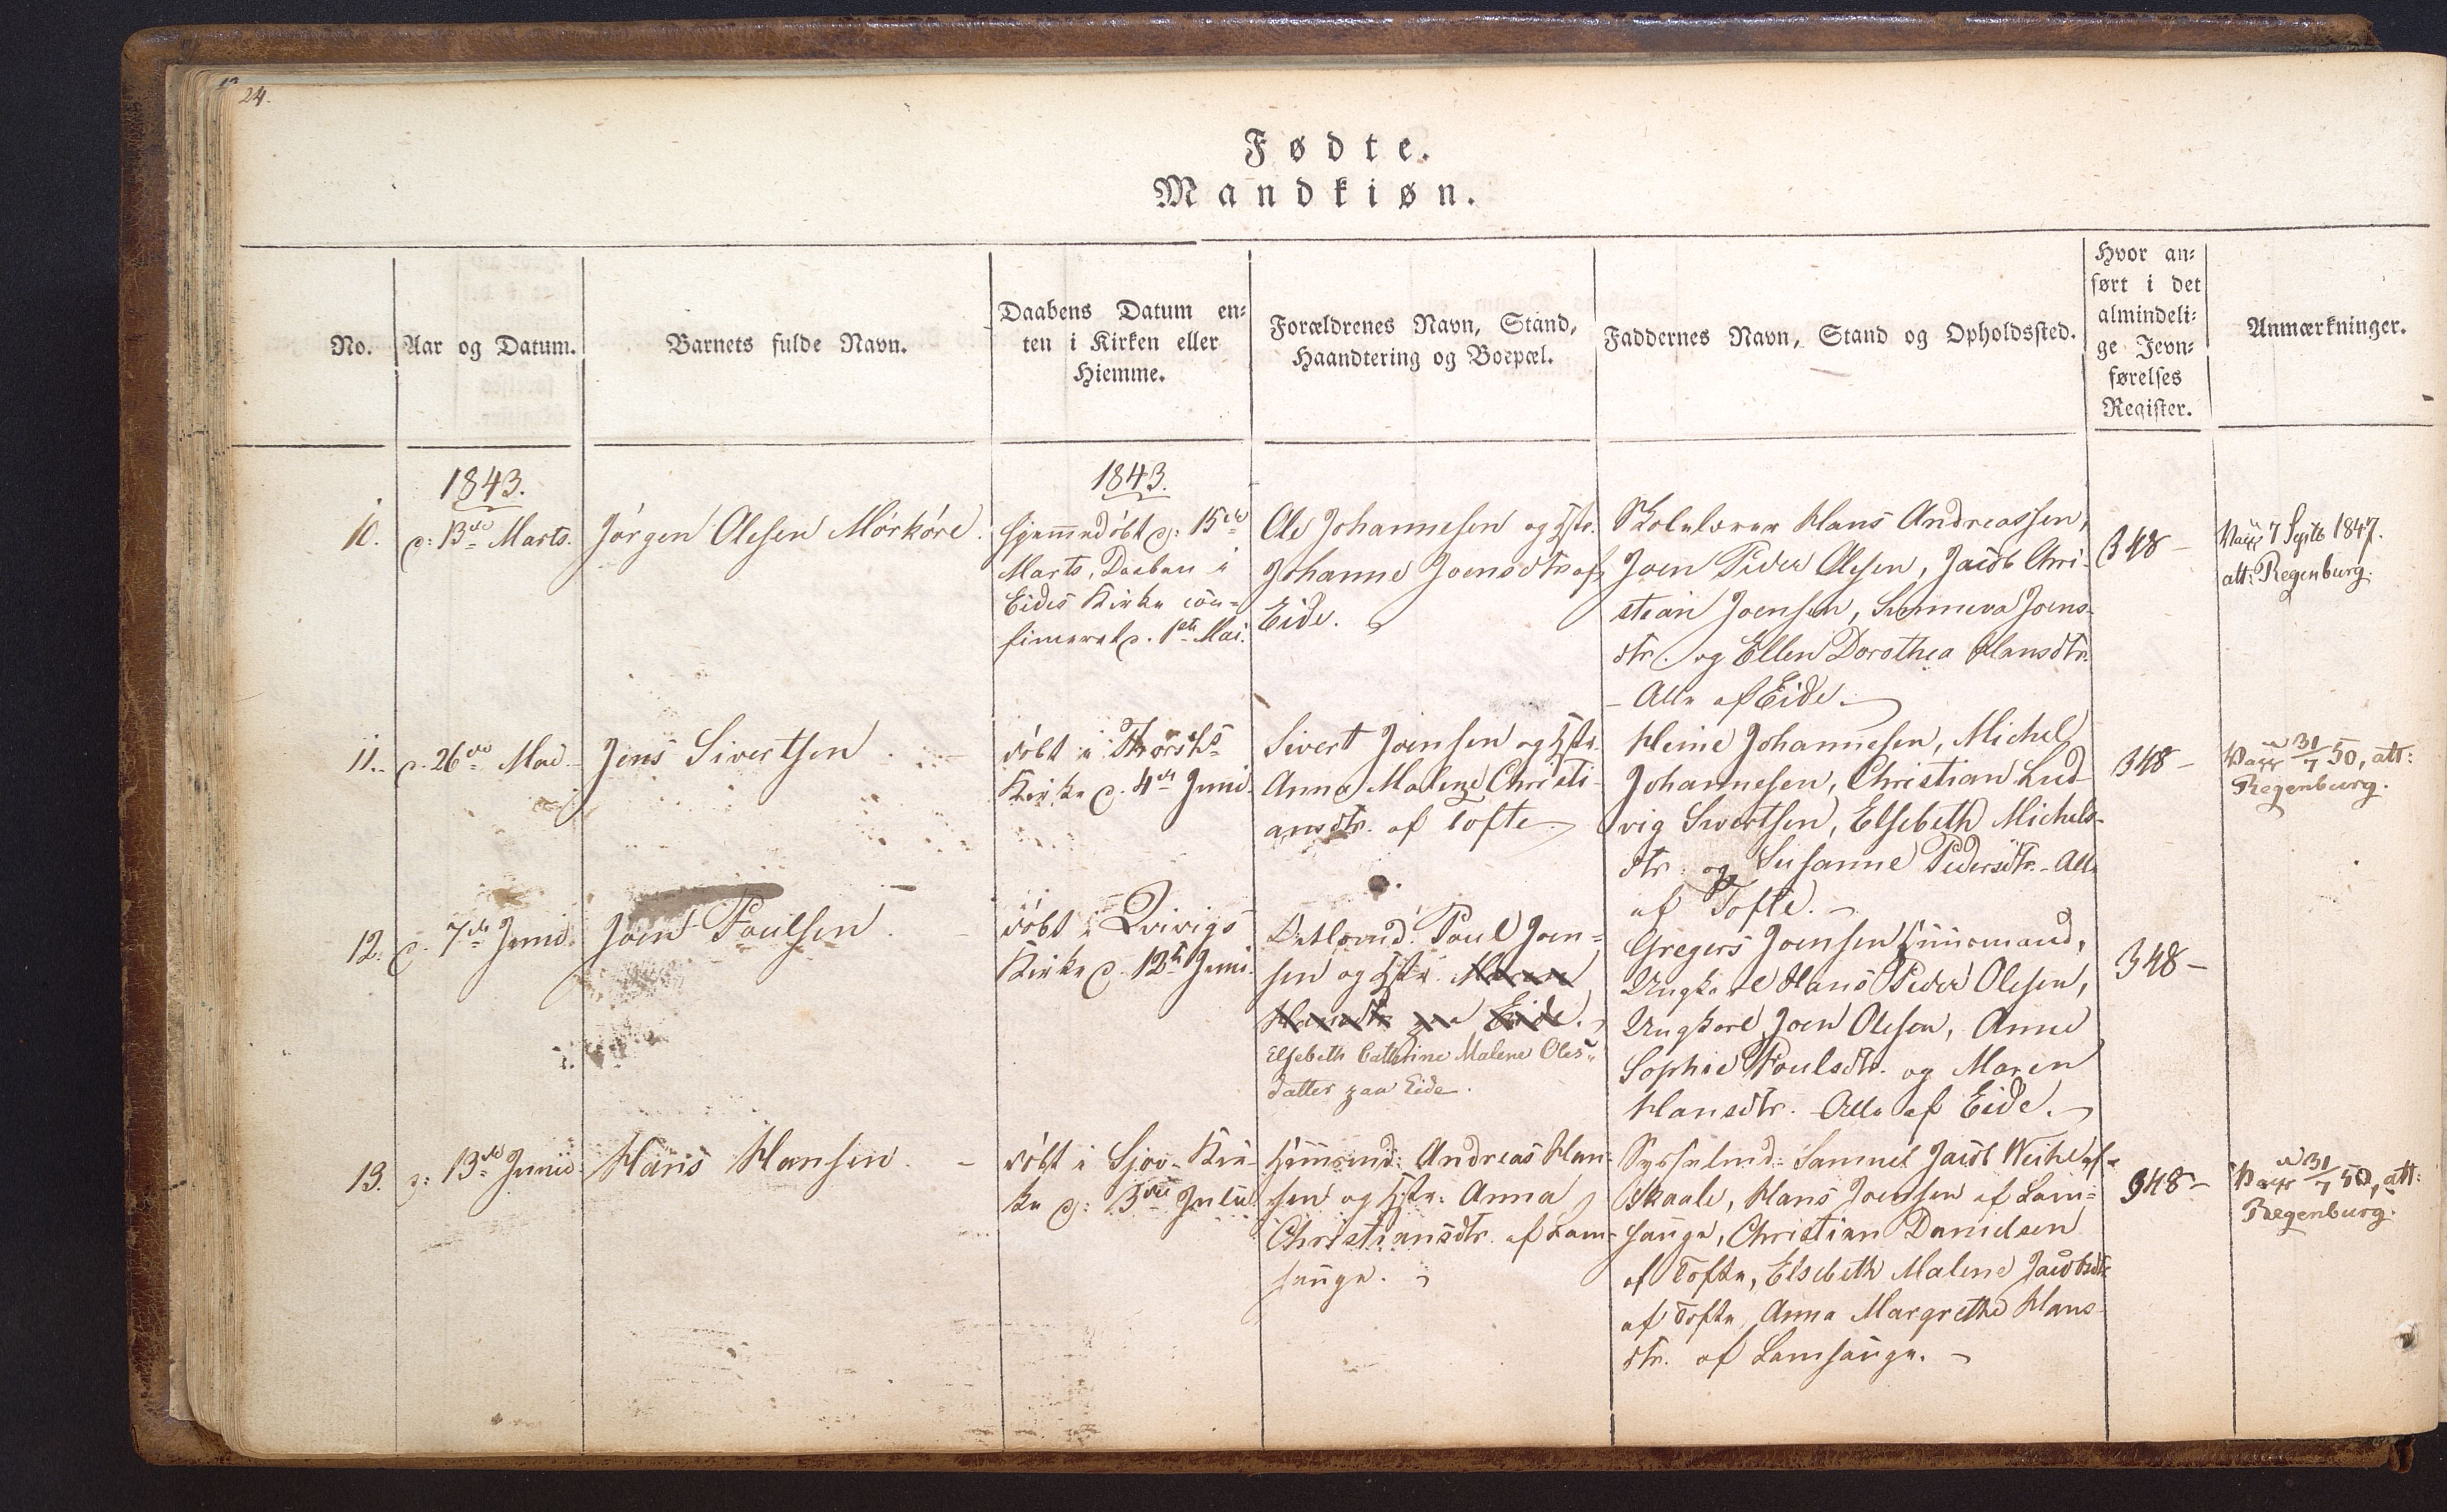 24.
Fødte.
Mandkiøn.
No.
Aar og Datum.
Barnets fulde Navn.
Daabens Datum en-
ten i Kirken eller
Hiemme.
Forældrenes Navn, Stand,
Haandtering og Boepæl.
Faddernes Navn, Stand og Opholdssted.
Hvor an-
ført i det
almindeli-
ge Jevn-
førelses
Register.
Anmærkninger.
1843.
10.
d: 13de Marts.
Jörgen Olesen Mörköre.
1843.
hjemmedöbt d: 15de
Marts, Daaben i
Eides Kirke con-
firmeret d. 1ste Mai.
Ole Johannesen og Hstr.
Johanne Joensdtr af
Eide.
Skolelærer Hans Andreassen,
Joen Peder Olesen, Jacob Chri-
stian Joensen, Sunneva Joens-
dtr. og Ellen Dorothea Hansdtr.
- Alle af Eide.
348 -
Vacc 7 Septb 1847.
att: Regenburg.
11.
d. 26de Mai
Jens Sivertsen
döbt i Thorsh.
Kirke d. 4de Juni.
Sivert Joensen og Hstr.
Anna Malene Christi-
ansdtr. af Tofte.
Heine Johannesen, Michel
Johannesen, Christian Lud-
vig Sivertsen, Elsebeth Michels-
dtr. og Susanne Pedersdtr. - Alle
af Tofte. -
348 -
Vacc 31/7 50, att:
Regenburg.
12.
d. 7de Juni.
Joen Poulsen
döbt i Qvivigs
Kirke d. 12te Juni.
Poul Joen-
sen og Hstr. Maren
Hansdtr paa Eide.
Elsebeth Cathrine Malene Oles-
datter paa Eide.
Gregers Joensen Huusmand,
Ungkarl Hans Peder Olesen,
Ungkarl Joen Olesen, Anne
Sophie Poulsdtr. og Maren
Hansdtr. - Alle af Eide.
348 -
13.
d: 13de Junii
Hans Hansen. -
döbt i Sjov- Kir-
ke d: 3die Julii
Huusmd: Andreas Han-
sen og Hstr: Anna
Christiansdtr. af Lam-
hauge.
Sysselmd: Samuel Jacob Weihe af
Skaale, Hans Joensen af Lam-
hauge, Christian Danielsen
af Tofte, Elsebeth Malene Jacobsdtr
af Tofte, Anna Margrethe Hans-
dtr. af Lamhauge. -
348 -
Vacc 31/7 50, att:
Regenburg.